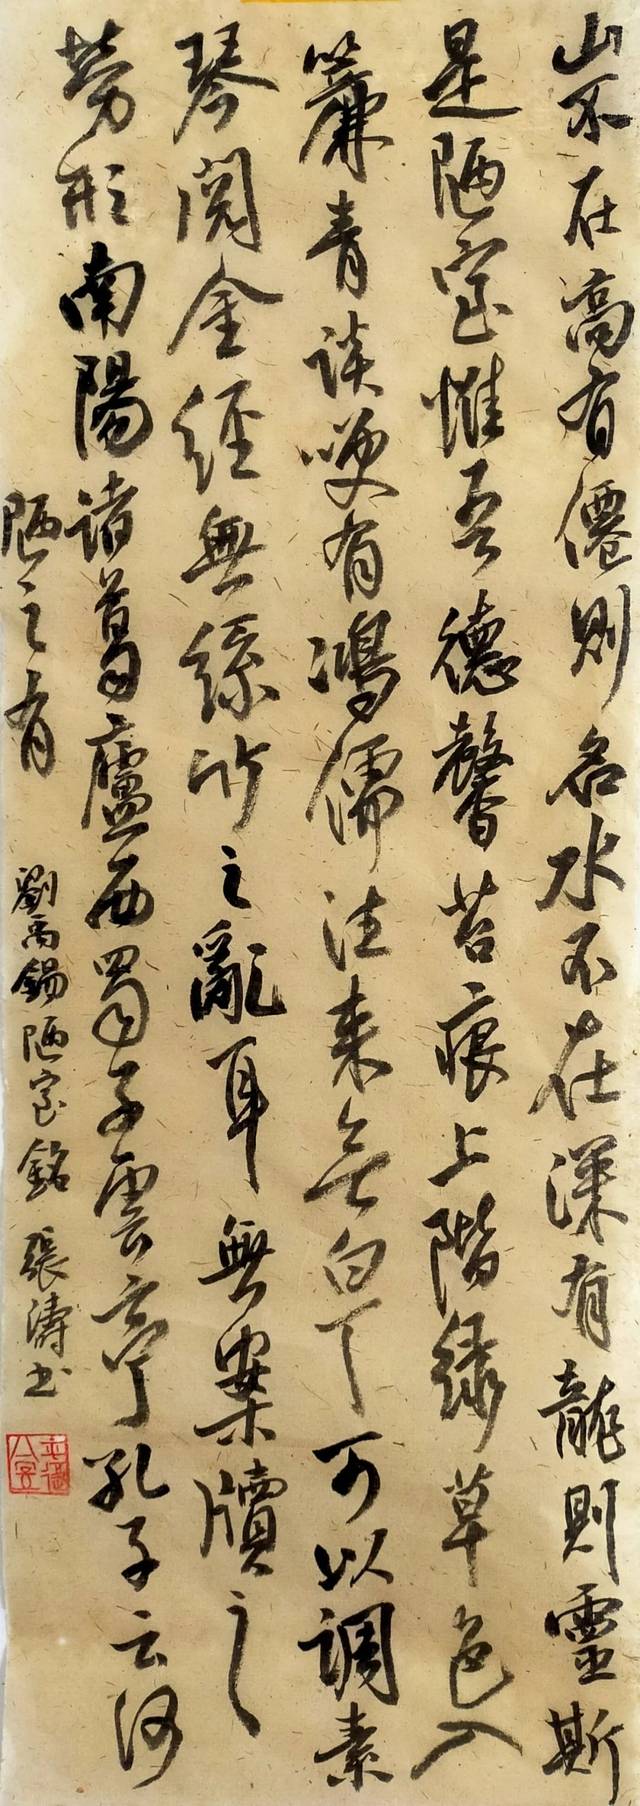 山不在高有僊則名水不在深有龍則靈斯
是陋室惟吾德馨苔痕上階緑草色入
簾青談笑有鴻儒往来無白丁可以調素
琴閲金經無絲竹之亂耳無案牘之
勞形南陽諸葛廬西蜀子雲亭孔子云何
陋之有
劉禹錫陋室銘 張濤书